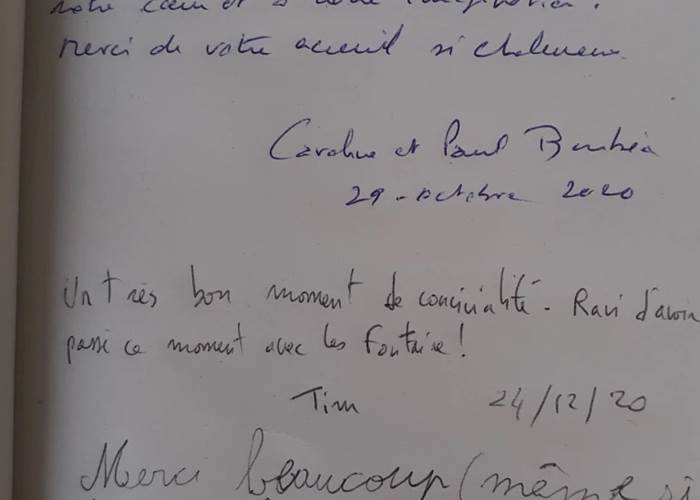 votre cœur et à votre imagination.
Merci de votre accueil si chaleureux
Caroline et Paul
29 - octobre 2020
Un très bon moment de convivialité - Ravi d'avoir
passé ce moment avec les Fontaine !
Tim
24/12/20
Merci beaucoup (même si